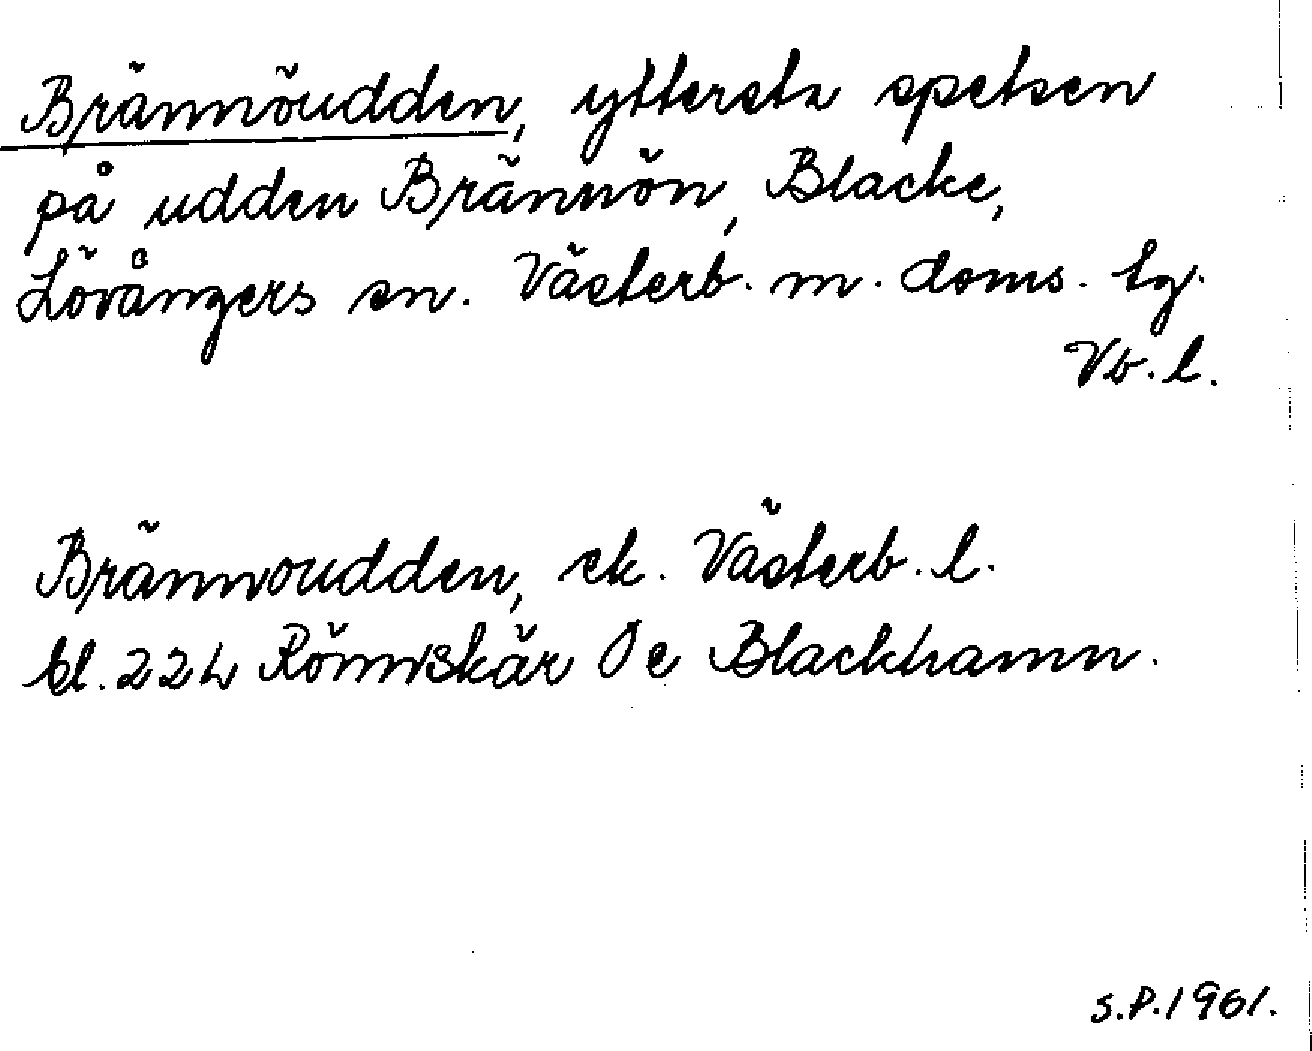 Brännöudden, yttersta spetsen
på udden Brännön, Blacke,
Lövångers sn. Västerb. m. doms. tg.
Vb. l.
Brännoudden, ek. Västerb. l.
bl. 224 Rönnskär Blackhamn.
S.P. 1961.